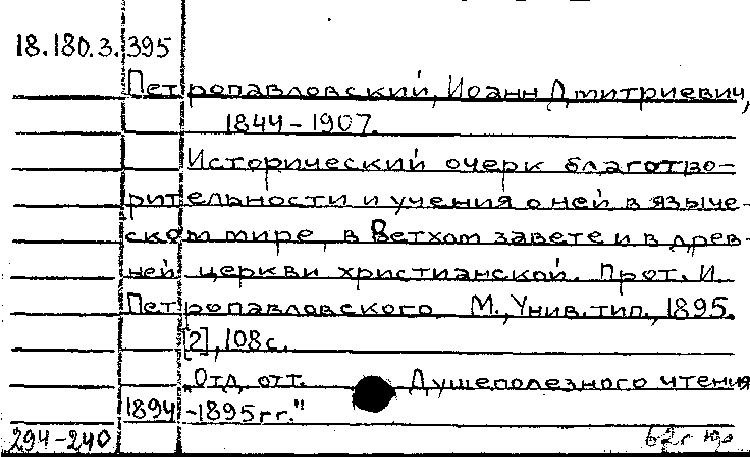 18.180.3.395
Петропавловский, Иоанн Дмитриевич,
1844-1907.
Исторический очерк благотво-
рительности и учения о ней в языче-
ском мире, в Ветхом завете и в древ-
ней церкви христианской. Прот. И.
Петропавловского. М., Унив. тип., 1895.
[2], 108 с.
"Отд. отт. Душеполезного чтения
1894-1895 гг."
294-240 62г